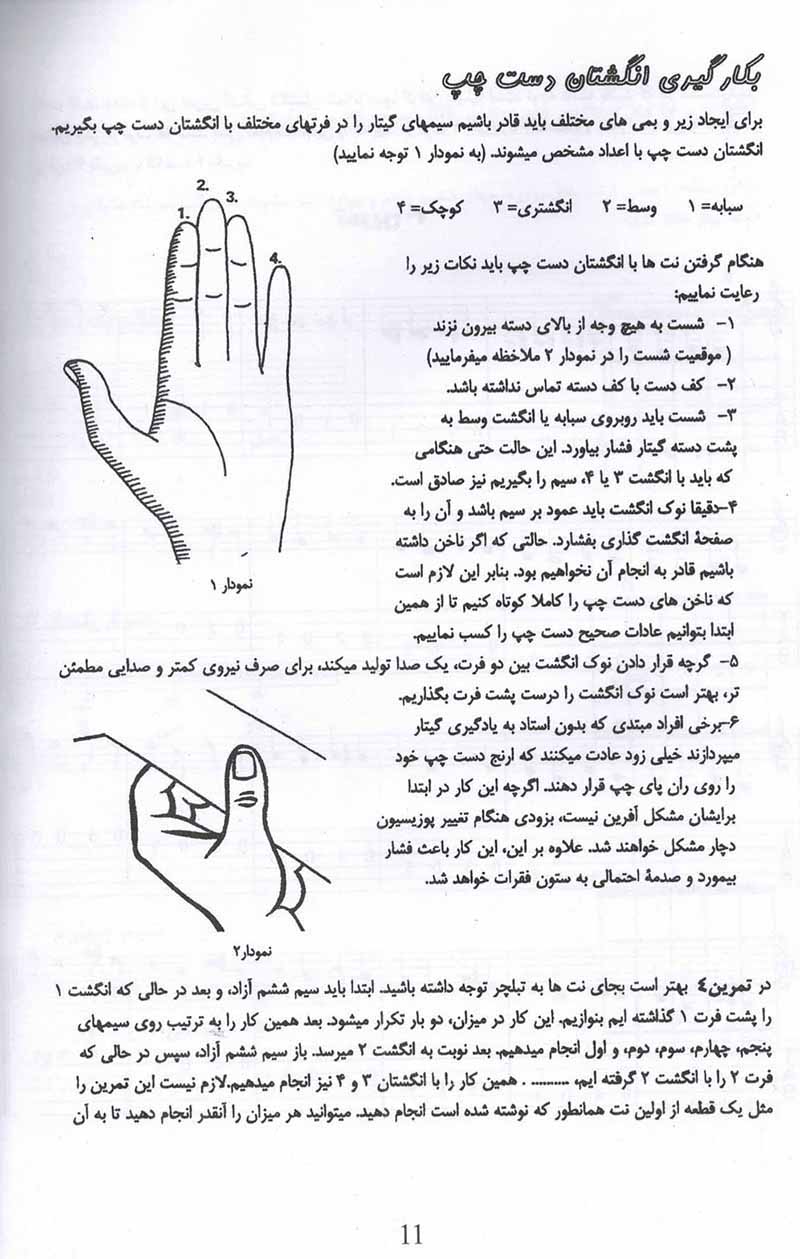 بکارگیری انگشتان دست چپ
برای ایجاد زیر و بمی های مختلف باید قادر باشیم سیمهای گیتار را در فرتهای مختلف با انگشتان دست چپ بگیریم.
انگشتان دست چپ با اعداد مشخص میشوند. (به نمودار ۱ توجه نمایید)
سبابه= ۱ وسط= ۲ انگشتری= ۳ کوچک= ۴
1.
2.
3.
4.
هنگام گرفتن نت ها با انگشتان دست چپ باید نکات زیر را
رعایت نماییم:
۱- شست به هیچ وجه از بالای دسته بیرون نزند
( موقعیت شست را در نمودار ۲ ملاخظه میفرمایید)
۲- کف دست با کف دسته تماس نداشته باشد.
۳- شست باید روبروی سبابه یا انگشت وسط به
پشت دسته گیتار فشار بیاورد. این حالت حتی هنگامی
که باید با انگشت ۳ یا ۴، سیم را بگیریم نیز صادق است.
۴-دقیقا نوک انگشت باید عمود بر سیم باشد و آن را به
صفحهٔ انگشت گذاری بفشارد. حالتی که اگر ناخن داشته
باشیم قادر به انجام آن نخواهیم بود. بنابر این لازم است
که ناخن های دست چپ را کاملا کوتاه کنیم تا از همین
ابتدا بتوانیم عادات صحیح دست چپ را کسب نماییم.
نمودار ۱
۵- گرچه قرار دادن نوک انگشت بین دو فرت، یک صدا تولید میکند، برای صرف نیروی کمتر و صدایی مطمئن
تر، بهتر است نوک انگشت را درست پشت فرت بگذاریم.
۶-برخی افراد مبتدی که بدون استاد به یادگیری گیتار
میپردازند خیلی زود عادت میکنند که ارنج دست چپ خود
را روی ران پای چپ قرار دهند. اگرچه این کار در ابتدا
برایشان مشکل آفرین نیست، بزودی هنگام تغییر پوزیسیون
دچار مشکل خواهند شد. علاوه بر این، این کار باعث فشار
بیمورد و صدمهٔ احتمالی به ستون فقرات خواهد شد.
نمودار۲
در تمرین۴ بهتر است بجای نت ها به تبلچر توجه داشته باشید. ابتدا باید سیم ششم آزاد، و بعد در حالی که انگشت ۱
را پشت فرت ۱ گذاشته ایم بنوازیم. این کار در میزان، دو بار تکرار میشود. بعد همین کار را به ترتیب روی سیمهای
پنجم، چهارم، سوم، دوم، و اول انجام میدهیم. بعد نوبت به انگشت ۲ میرسد. باز سیم ششم آزاد، سپس در حالی که
فرت ۲ را با انگشت ۲ گرفته ایم، .......... . همین کار را با انگشتان ۳ و ۴ نیز انجام میدهیم.لازم نیست این تمرین را
مثل یک قطعه از اولین نت همانطور که نوشته شده است انجام دهید. میتوانید هر میزان را آنقدر انجام دهید تا به آن
11